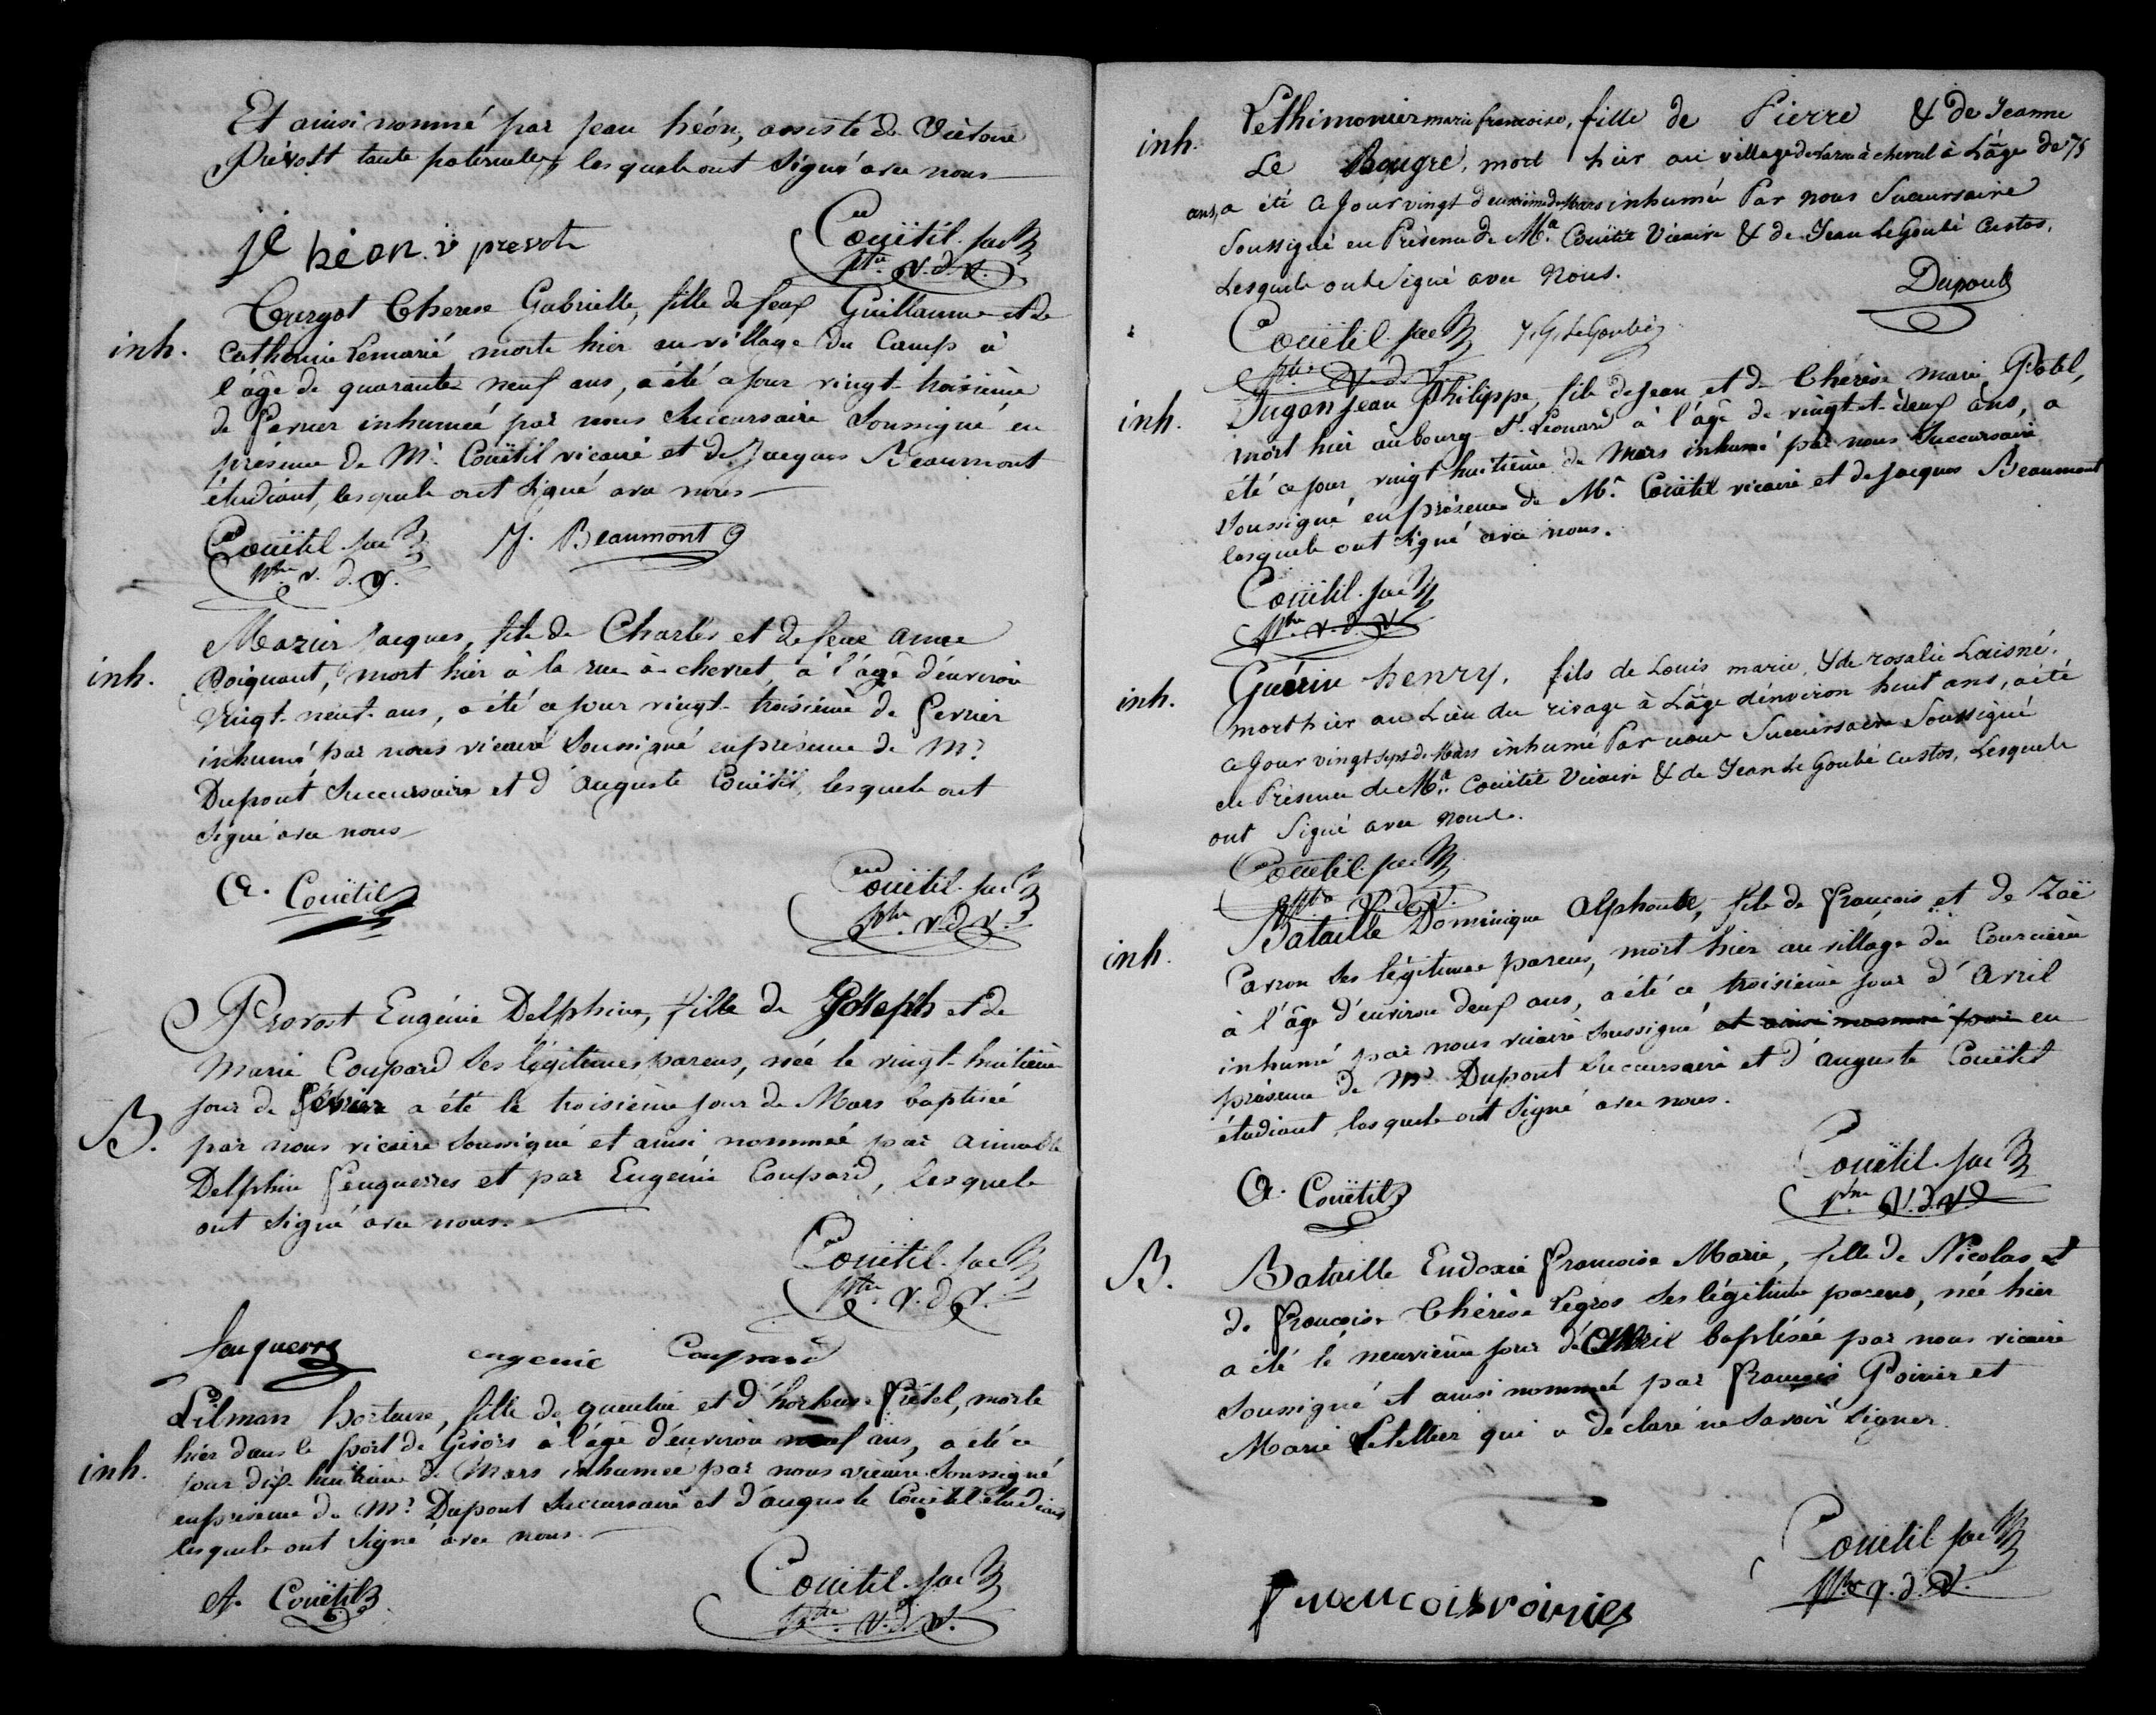 Et ainsi nommé par Jean héon, assisté de Victoire
Prévost tante paternelle, lesquels ont signé avec nous
je héon v prevost
Couëtil
ptre v.d.v.
Turgot Therese Gabrielle, fille de feu Guillaume et de
inh. Catherine Lemarié morte hier au village du Camp à
l'âge de quarante neuf ans, a été ce jour vingt-troisième
de fevrier inhumée par nous Succursaire Soussigné en
présence de Mr. Couëtil vicaire et de Jacques Beaumont
étudiant, lesquels ont signé avec nous
Couëtil J. Beaumont
ptre v. d. v.
Mazier Jacques, fils de Charles et de feue anne
inh. Poignant, mort hier à la rue à chevret, à l'âge d'environ
Vingt-neuf-ans, a été ce jour vingt-troisième de fevrier
inhumé par nous vicaire Soussigné en présence de Mr
Dupont Succursaire et d'auguste Couëtil, lesquels ont
signé avec nous
A. Couëtil
Couëtil
ptre. v.d.v.
Provost Eugénie Delphine, fille de Joseph et de
Marie Coupard ses légitimes parens, née le vingt-huitième
jour de février a été le troisième jour de Mars baptisée
B. par nous vicaire Soussigné et ainsi nommée par aimable
Delphin feuguerres et par Eugénie Coupard, lesquels
ont signé avec nous.
Couëtil
ptre. v.d.v.
feuguerres eugenie Coupard
Lilman hortense, fille de quentin et d'hortense Fretel, morte
hier dans le port de Gisors à l'âge d'environ neuf ans, a été ce
inh. jour dix-huitième de Mars inhumée par nous vicaire Soussigné
en présence de Mr Dupont Succursaire et d'auguste Couëtil étudiant
lesquels ont signé avec nous.
A. Couëtil
Couëtil
ptre. v.d.v.
inh. Lethimonier marie francoise, fille de Pierre & de Jeanne
Le Bougre, mort hier au village de à cheval à Lâge de 75
ans, a été ce Jour vingt deuxième de Mars inhumée Par nous Succursaire
Soussigné en Présence de Mr. Couëtil Vicaire & de Jean LeGoubé Custos,
Lesquels ont Signé avec Nous.
Dupont
Couëtil
ptre v.d.v.
inh. Dugan Jean Philippe, fils de Jean et de Thérèse marie Potel,
mort hier au bourg St. Léonard à l'âge de vingt-et-deux ans, a
été ce jour vingt huitième de Mars inhumé par nous Succursaire
Soussigné en présence de Mr. Couëtil vicaire et de Jacques Beaumont
lesquels ont signé avec nous.
Couëtil
ptre. v.d.v.
inh. Guérin henry, fils de Louis marie, & de rosalie Laisné,
mort hier au Lieu du rivage à Lâge d'environ huit ans, a été
ce Jour vingt sept de Mars inhumé Par nous Succursaire Soussigné
en Présence de Mr. Couëtil Vicaire & de Jean Le Goubé custos, Lesquels
ont Signé avec Nous.
Couëtil
ptre v.d.v.
inh. Bataille Dominique Alphonse, fils de François et de Zoë
Caron ses légitimes parens, mort hier au village du Courcière
à l'âge d'environ deux ans, a été ce troisième jour d'Avril
inhumé par nous vicaire Soussigné et ainsi nommé par en
présence de Mr Dupont Succursaire et d'auguste Couëtil
étudiant, lesquels ont signé avec nous.
A. Couëtil
Couëtil
ptre V.d.v.
B. Bataille Eudoxie françoise Marie, fille de Nicolas et
de françoise Thérèse Legros ses légitimes parens, née hier
a été le neuvième jour d'Avril baptisée par nous vicaire
Soussigné et ainsi nommée par François Poirier et
Marie Letellier qui a déclaré ne savoir signer.
Couëtil
ptre v.d.v.
francois poirier